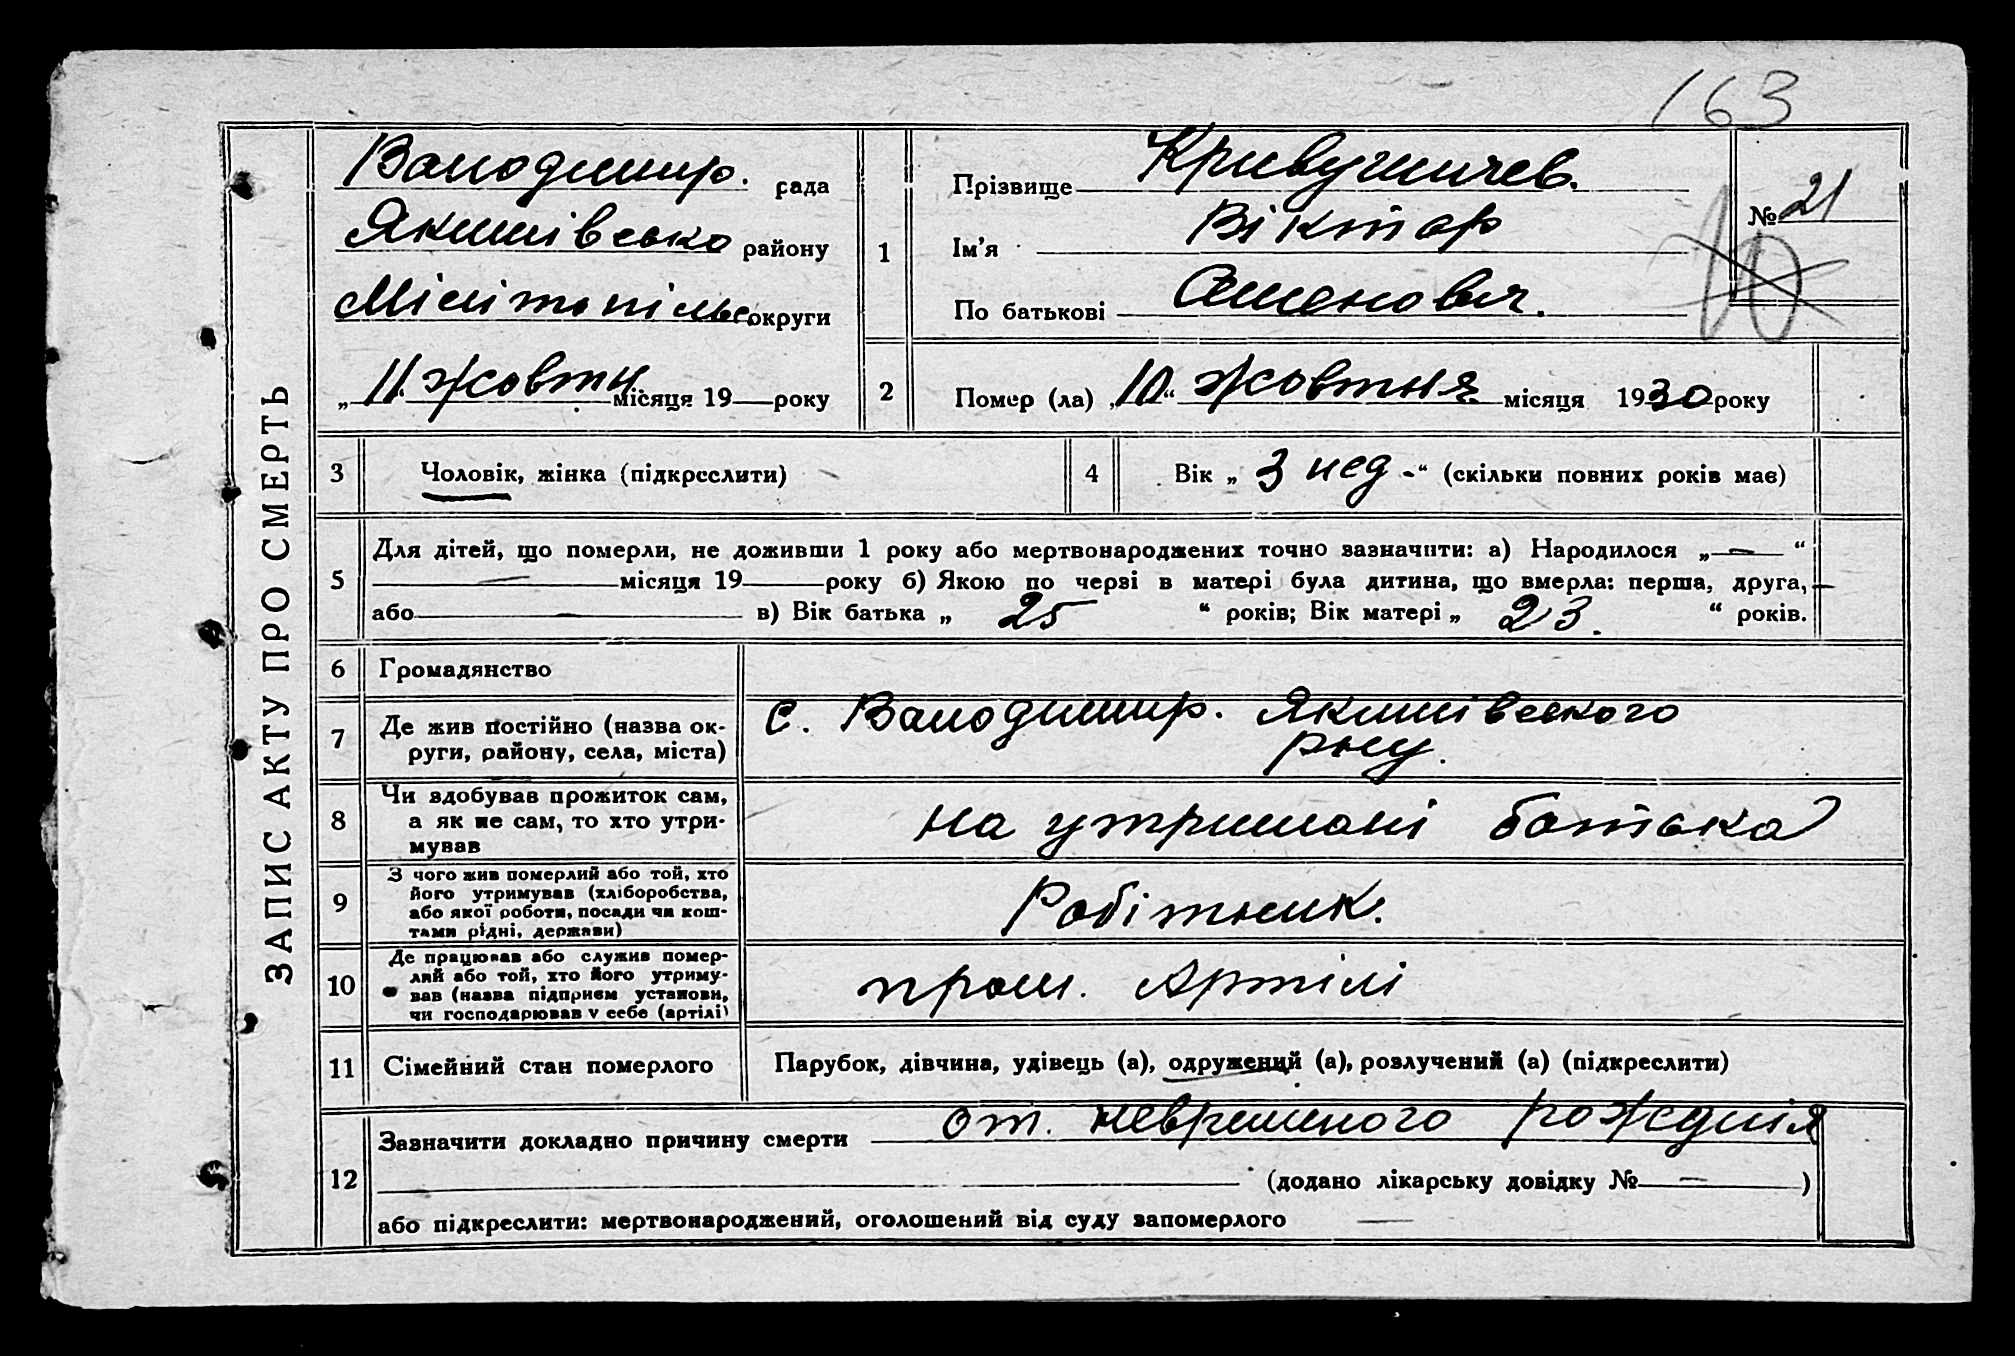 163
ЗАПИС АКТУ ПРО СМЕРТЬ
Володимир. рада
Якимівсько району
Мілітопільс округи
„ 11 жовтн. місяця 19 року
1
Прізвище
Ім'я Віктор
По батькові Семенович.
№ 21
10
2
Помер (ла) „10“ жовтня місяця 1930 року
3
Чоловік, жінка (підкреслити)
4
Вік „ 3 нед -“ (скільки повних років має)
5
Для дітей, що померли, не доживши 1 року або мертвонароджених точно зазначити: а) Народилося „—“
— місяця 19 року б) Якою по черзі в матері була дитина, що вмерла: перша, друга, —
або — в) Вік батька „ 25 “ років; Вік матері „ 23. “ років.
6
Громадянство
7
Де жив постійно (назва ок-
руги, району, села, міста)
с. Володимир. Якимівського
р-ну.
8
Чи здобував прожиток сам,
а як не сам, то хто утри-
мував
на утримані батька
9
З чого жив померлий або той, хто
його утримував (хліборобства,
або якої роботи, посади чи кош-
тами рідні, держави)
Робітник.
10
Де працював або служив помер-
лий або той, хто його утриму-
вав (назва підприєм установи,
чи господарював у себе (артілі)
пром. Артілі
11
Сімейний стан померлого
Парубок, дівчина, удівець (а), одружений (а), розлучений (а) (підкреслити)
12
Зазначити докладно причину смерти от. невременого рождния
(додано лікарську довідку № — )
або підкреслити: мертвонароджений, оголошений від суду запомерлого —